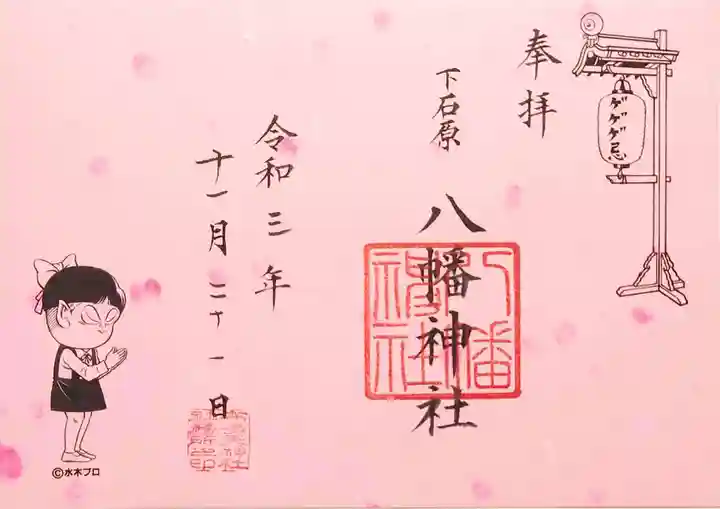 奉拝
ゲゲゲ忌
下石原
八幡神社
八幡神社
令和三年
十一月二十一日
©水木プロ